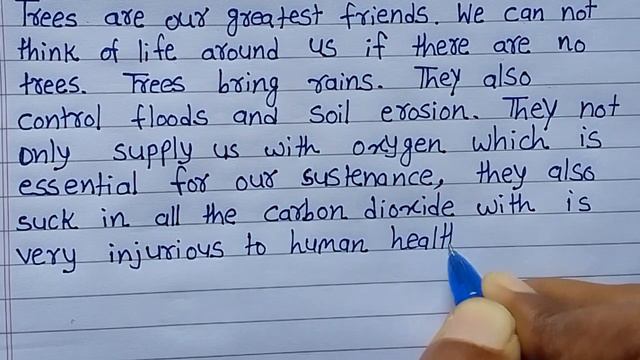 Trees are our greatest friends. We can not
think of life around us if there are no
trees. Trees bring rains. They also
control floods and soil erosion. They not
only supply us with oxygen which is
essential for our sustenance, they also
suck in all the carbon dioxide with is
very injurious to human healt